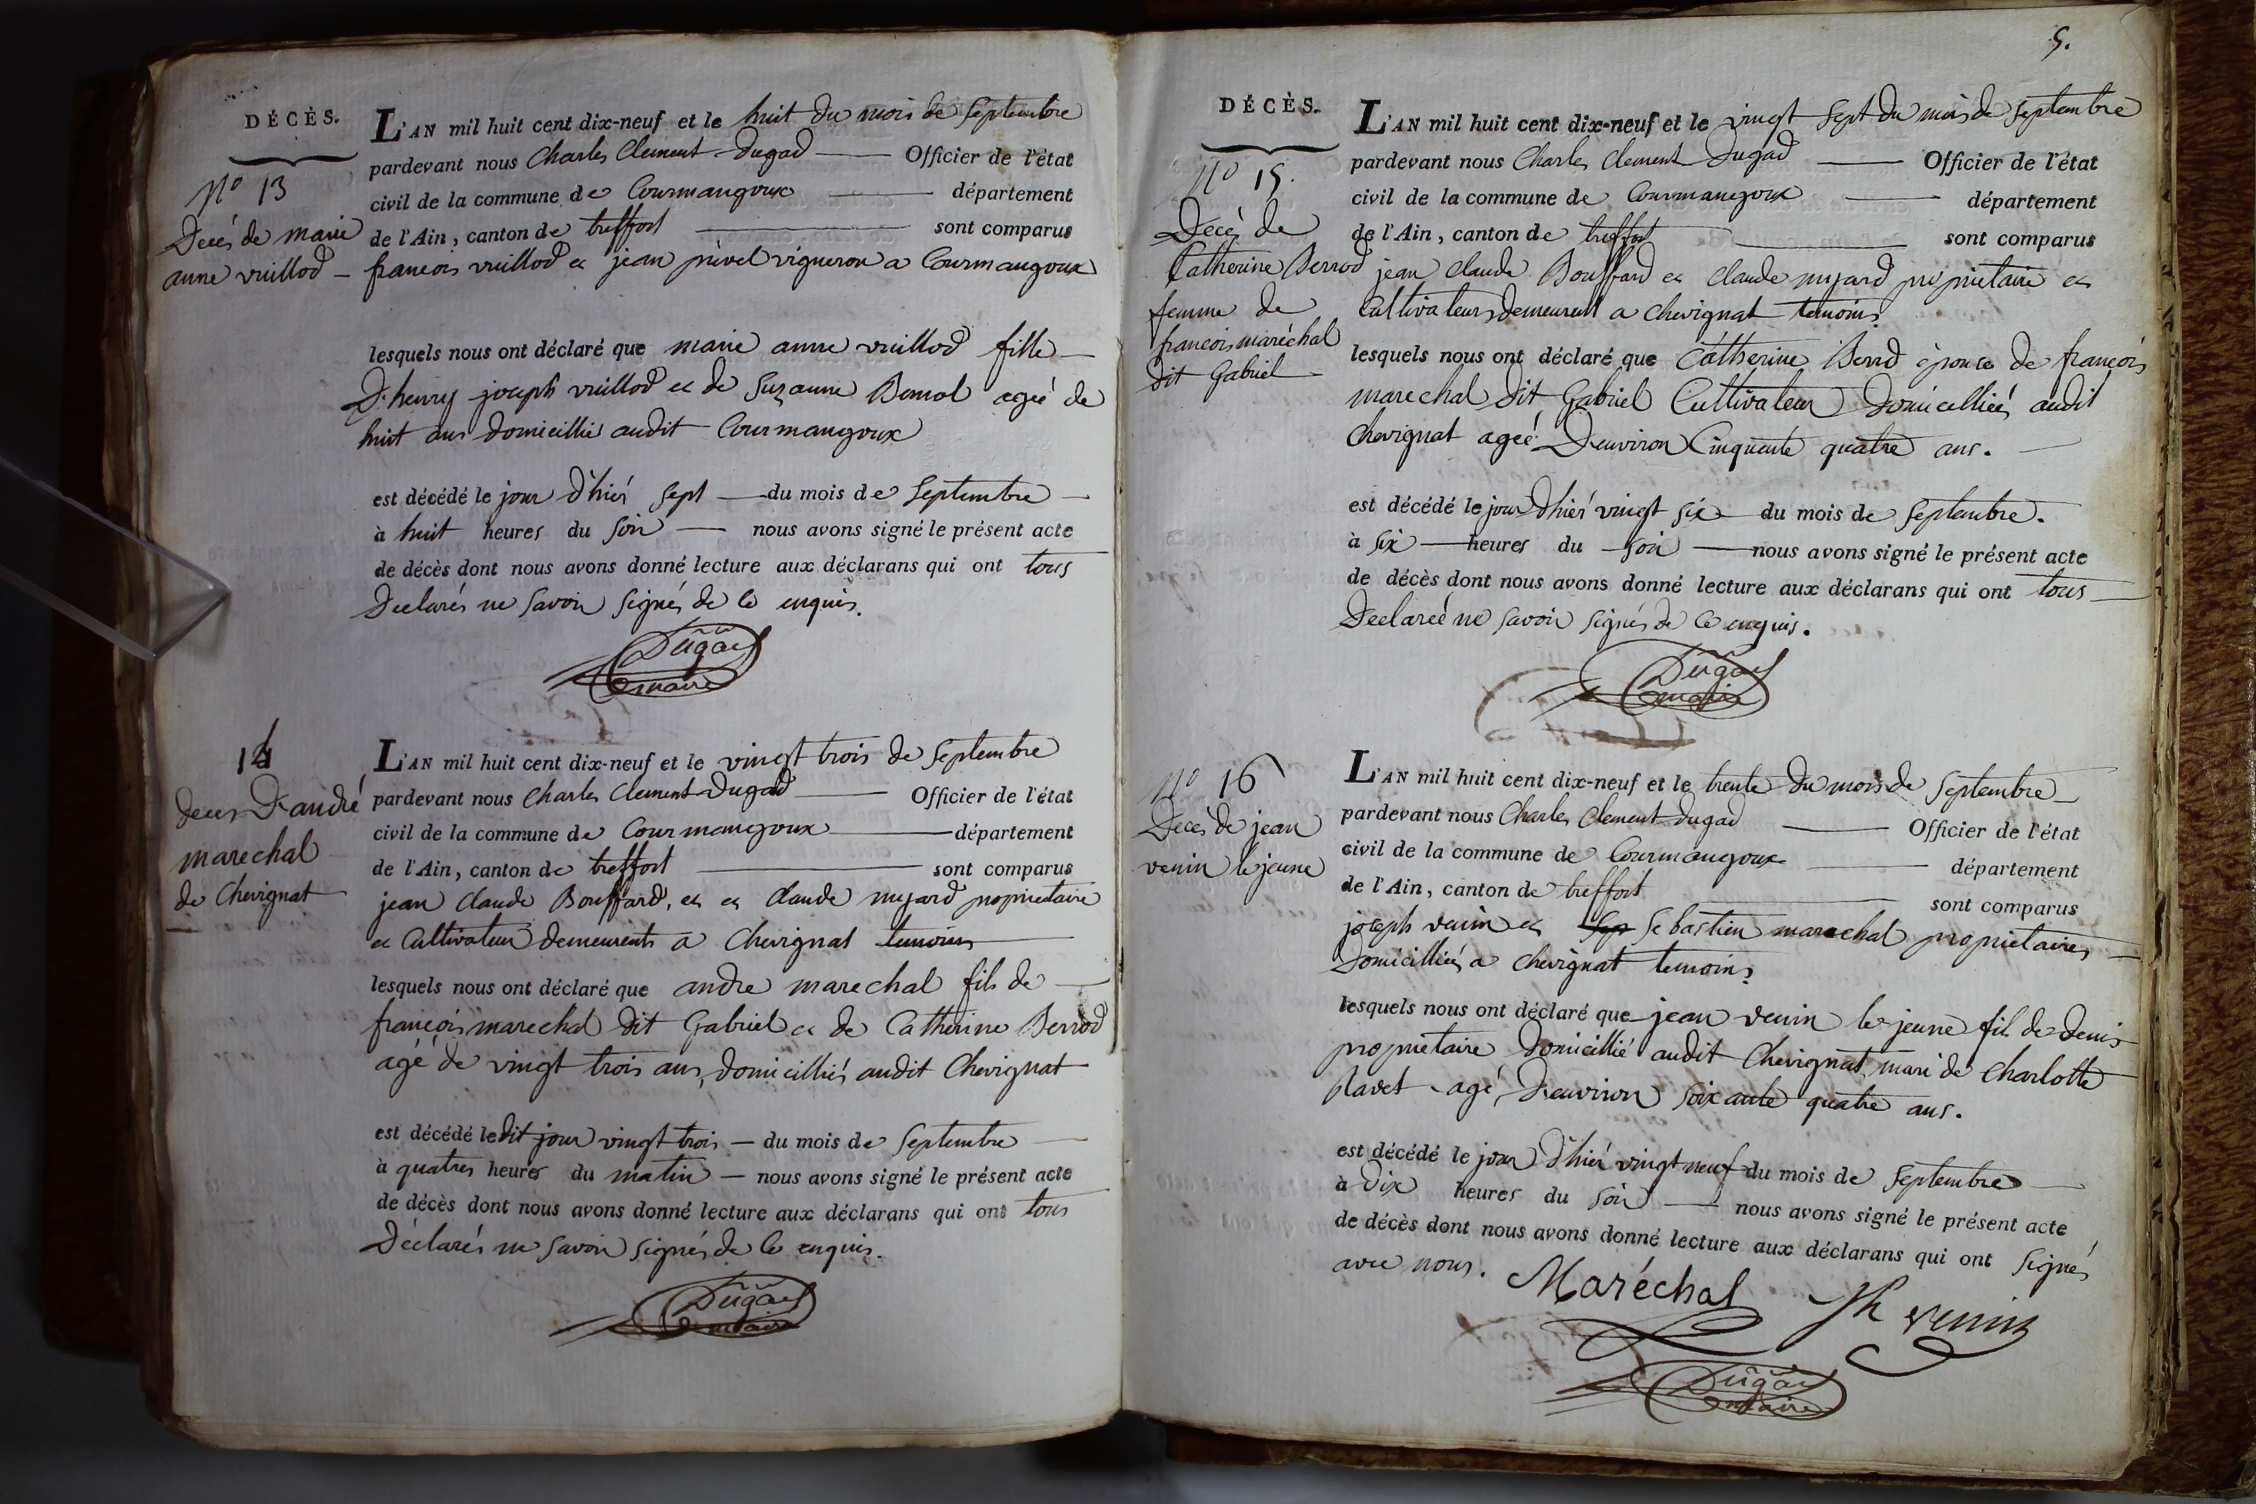 DÉCÈS.
N° 13
Decés de marie
anne vuillod
L'AN mil huit cent dix-neuf et le huit du mois de Septembre
pardevant nous Charles Clement Dugad Officier de l'état
civil de la commune de Courmangoux département
de l'Ain, canton de treffort sont comparus
francois vuillod et jean privel vigneron a Courmangoux
lesquels nous ont déclaré que marie anne vuillod fille
D'henry joseph vuillod et de Suzanne agée de
huit ans domicillié audit Courmangoux
est décédé le jour d'hiér sept du mois de Septembre
à huit heures du Soir nous avons signé le présent acte
de décès dont nous avons donné lecture aux déclarans qui ont tous
Declarés ne savoir signés de ce enquis.
Dugad
maire
14
deces D'andré
marechal
de Chevignat
L'AN mil huit cent dix-neuf et le vingt trois de Septembre
pardevant nous Charles Clement Dugad Officier de l'état
civil de la commune de Courmangoux département
de l'Ain, canton de treffort sont comparus
jean claude Bouffard, et et claude myard proprietaire
et Cultivateur demeurents a Chevignat temoins
lesquels nous ont déclaré que andre marechal fils de
françois marechal dit Gabriel et de Catherine Berrod
agé de vingt trois ans, domicilliés audit Chevignat
est décédé le dit jour vingt trois du mois de Septembre
à quatres heures du matin nous avons signé le présent acte
de décès dont nous avons donné lecture aux déclarans qui ont tous
Déclarés ne savoir signés de ce enquis.
Dugad
maire
5.
DÉCÈS.
N° 15.
Décès de
Catherine Berrod
femme de
francois maréchal
dit Gabriel
L'AN mil huit cent dix-neuf et le vingt sept du mois de septembre
pardevant nous Charles Clement Dugad Officier de l'état
civil de la commune de Courmangoux département
de l'Ain, canton de treffort sont comparus
jean claude Bouffard et claude myard proprietaire et
Cultivateurs demeurent a Chevignat temoins
lesquels nous ont déclaré que Catherine Berrod épouse de françois
marechal dit Gabriel Cultivateur domicelliés audit
Chevignat ageé D'environ Cinquente quatre ans.
est décédé le jour d'hiér vingt six du mois de Septembre.
à six heures du soir nous avons signé le présent acte
de décès dont nous avons donné lecture aux déclarans qui ont tous
Declareé ne savoir signés de ce enquis.
Dugad
maire
N° 16
Décès de jean
venin le jeune
L'AN mil huit cent dix-neuf et le trente du mois de Septembre
pardevant nous Charles Clement Dugad Officier de l'état
civil de la commune de Courmangoux département
de l'Ain, canton de treffort sont comparus
joseph venin et Sebastien marechal proprietaires
Domicilliés a chevignat temoins
lesquels nous ont déclaré que jean venin le jeune fils de denis
proprietaire domicillié audit Chevignat mari de Charlotte
ravet agé D'environ soixante quatre ans.
est décédé le jour d'hiér vingt neuf du mois de Septembre
à Dix heures du soir nous avons signé le présent acte
de décès dont nous avons donné lecture aux déclarans qui ont signés
avec nous. Maréchal Jh venin
Dugad
maire